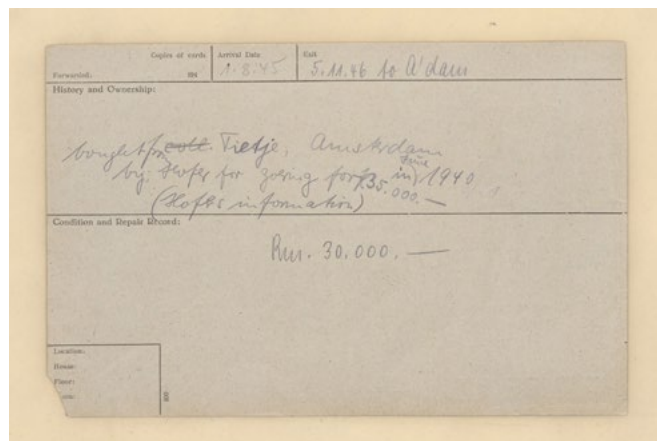 Copies of cards
Arrival Date
Exit
Forwarded:
194
1.8.45
5.11.46 to A'dam
History and Ownership:
bought fr. coll. Tietje, Amsterdam
by Hofer for Göring for f 35.000.— in June 1940
(Hofer's information)
Condition and Repair Record:
Rm. 30.000.—
Location:
House:
Floor: